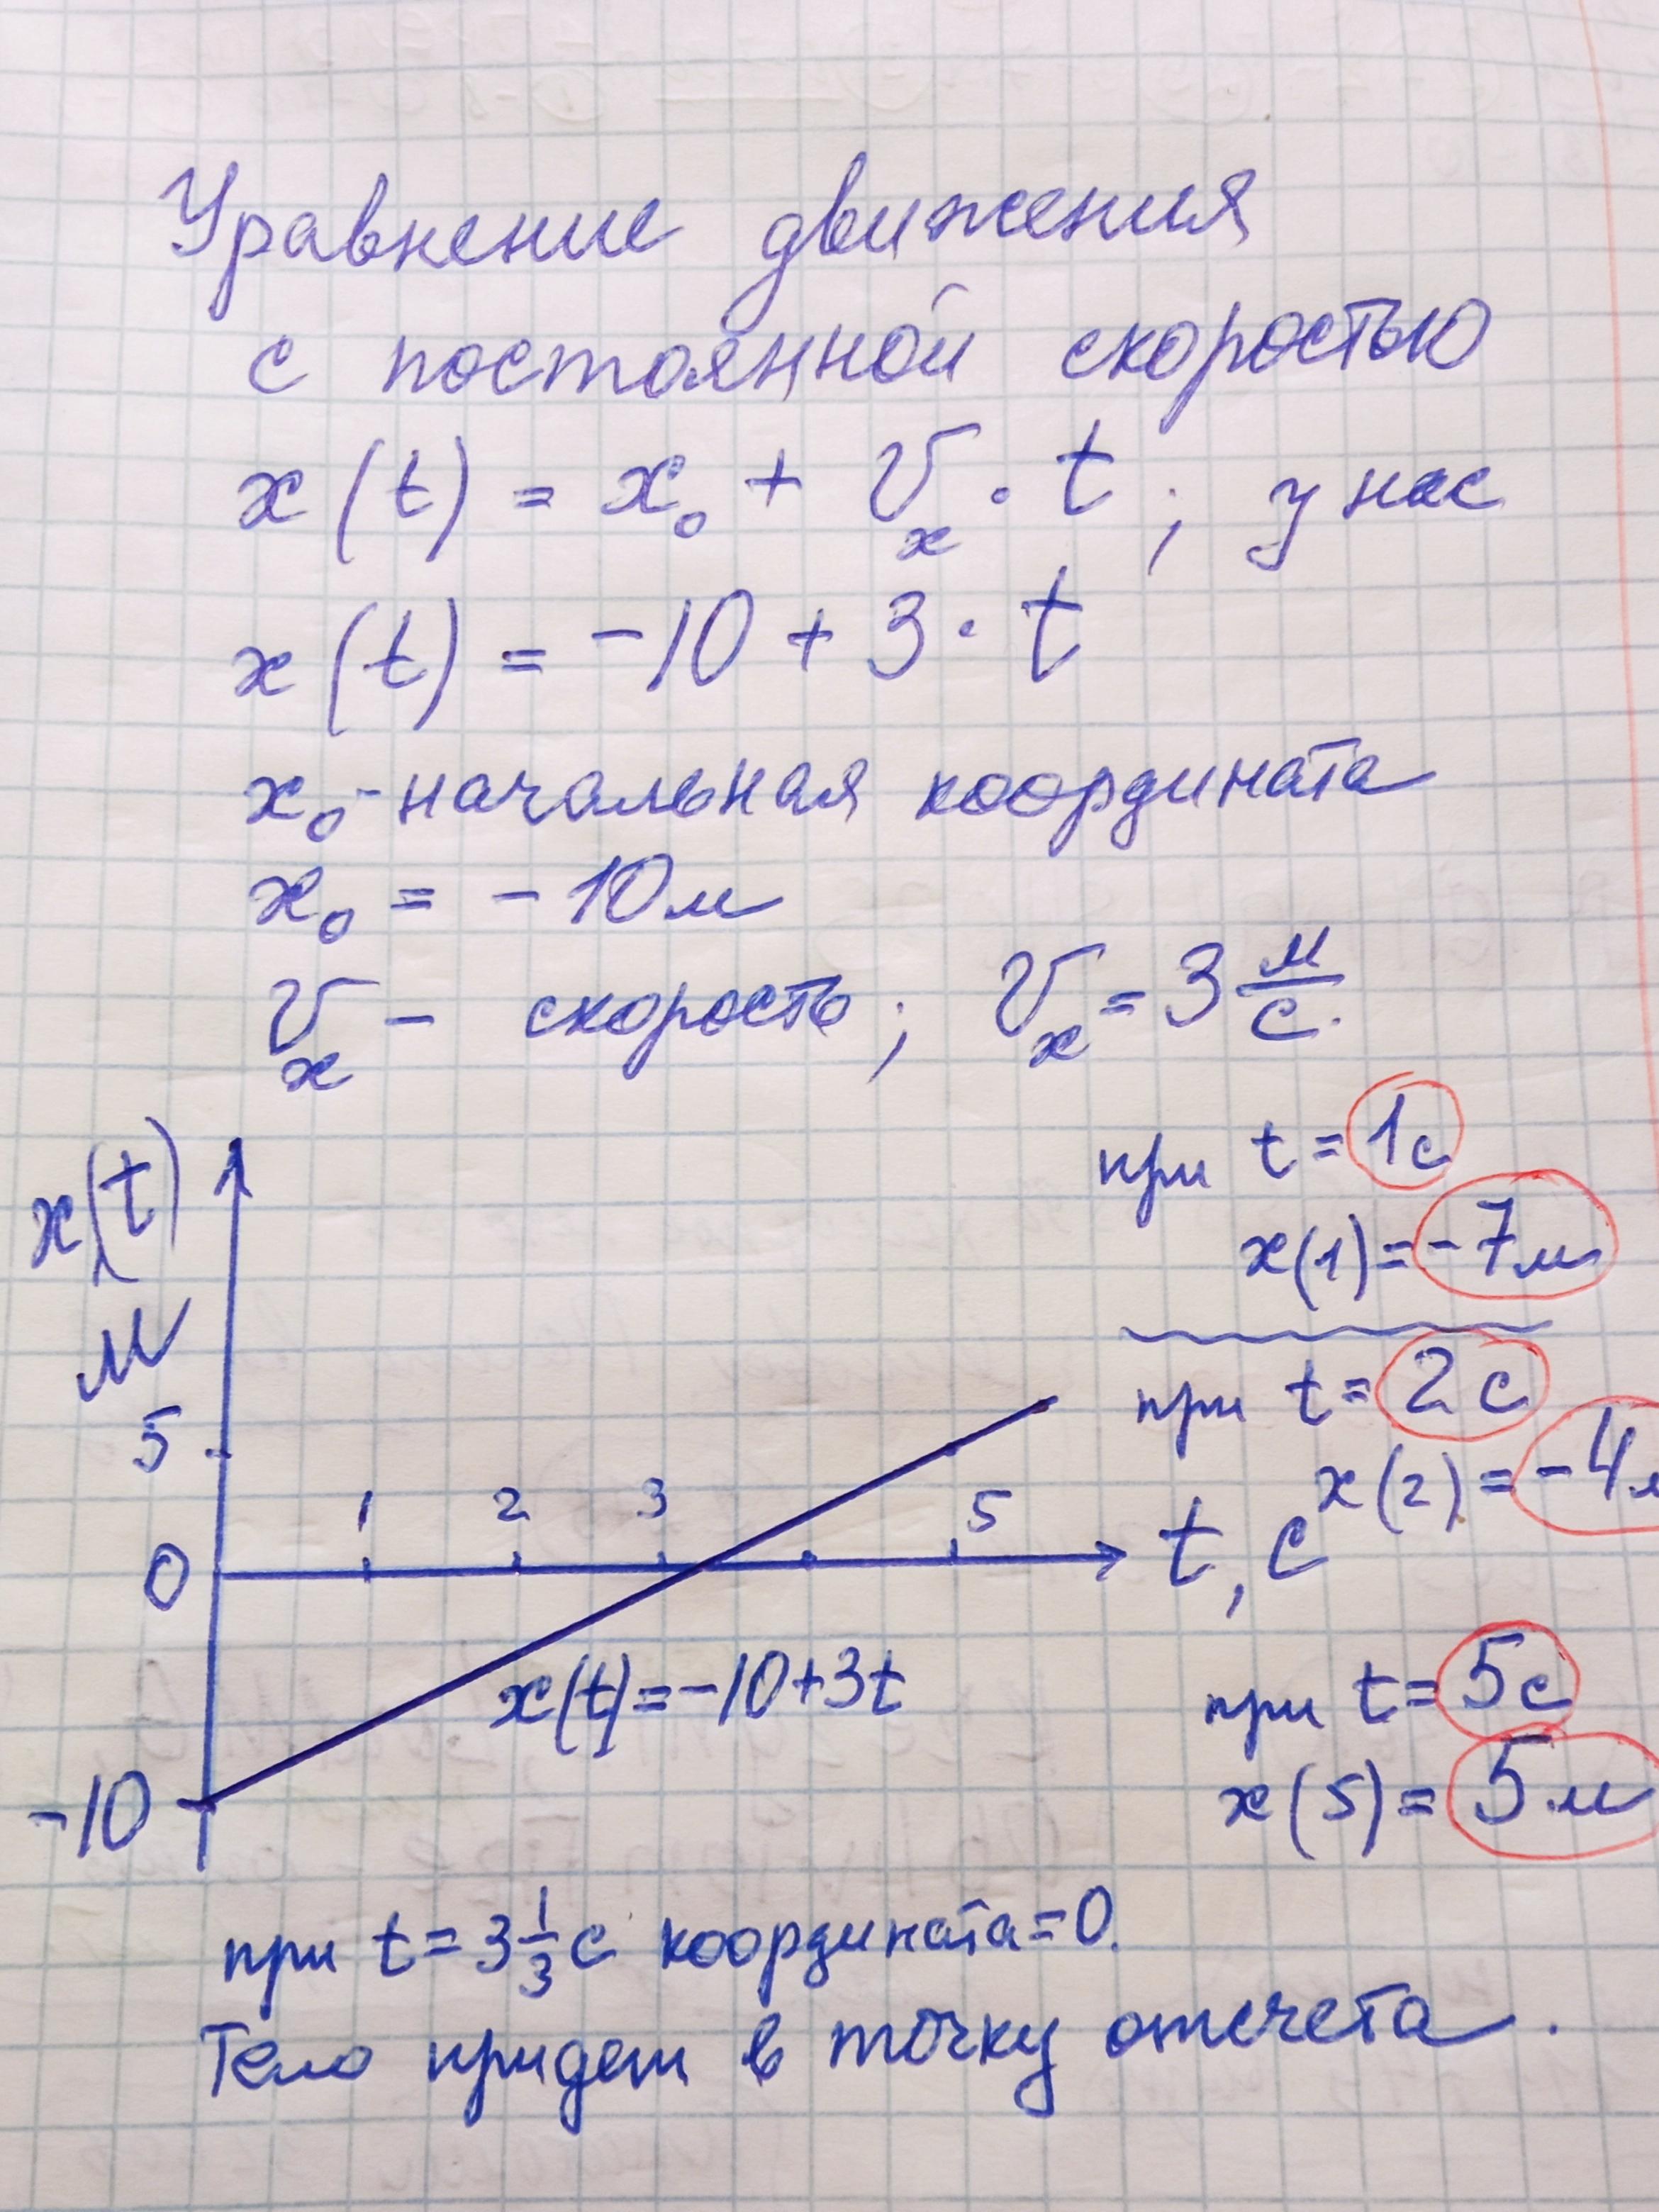 Уравнение движения
с постоянной скоростью
x(t) = x₀ + vₓ · t ; у нас
x(t) = -10 + 3 · t
x₀ - начальная координата
x₀ = - 10 м
vₓ - скорость ; vₓ = 3 м/с.
при t = 1с
x(1) = -7м
при t = 2с
x(2) = -4м
x(t)
м
5
1 2 3 5
0
t, с
x(t) = -10+3t
-10
при t = 5с
x(5) = 5м
при t = 3 1/3 с координата = 0.
Тело придет в точку отсчета.